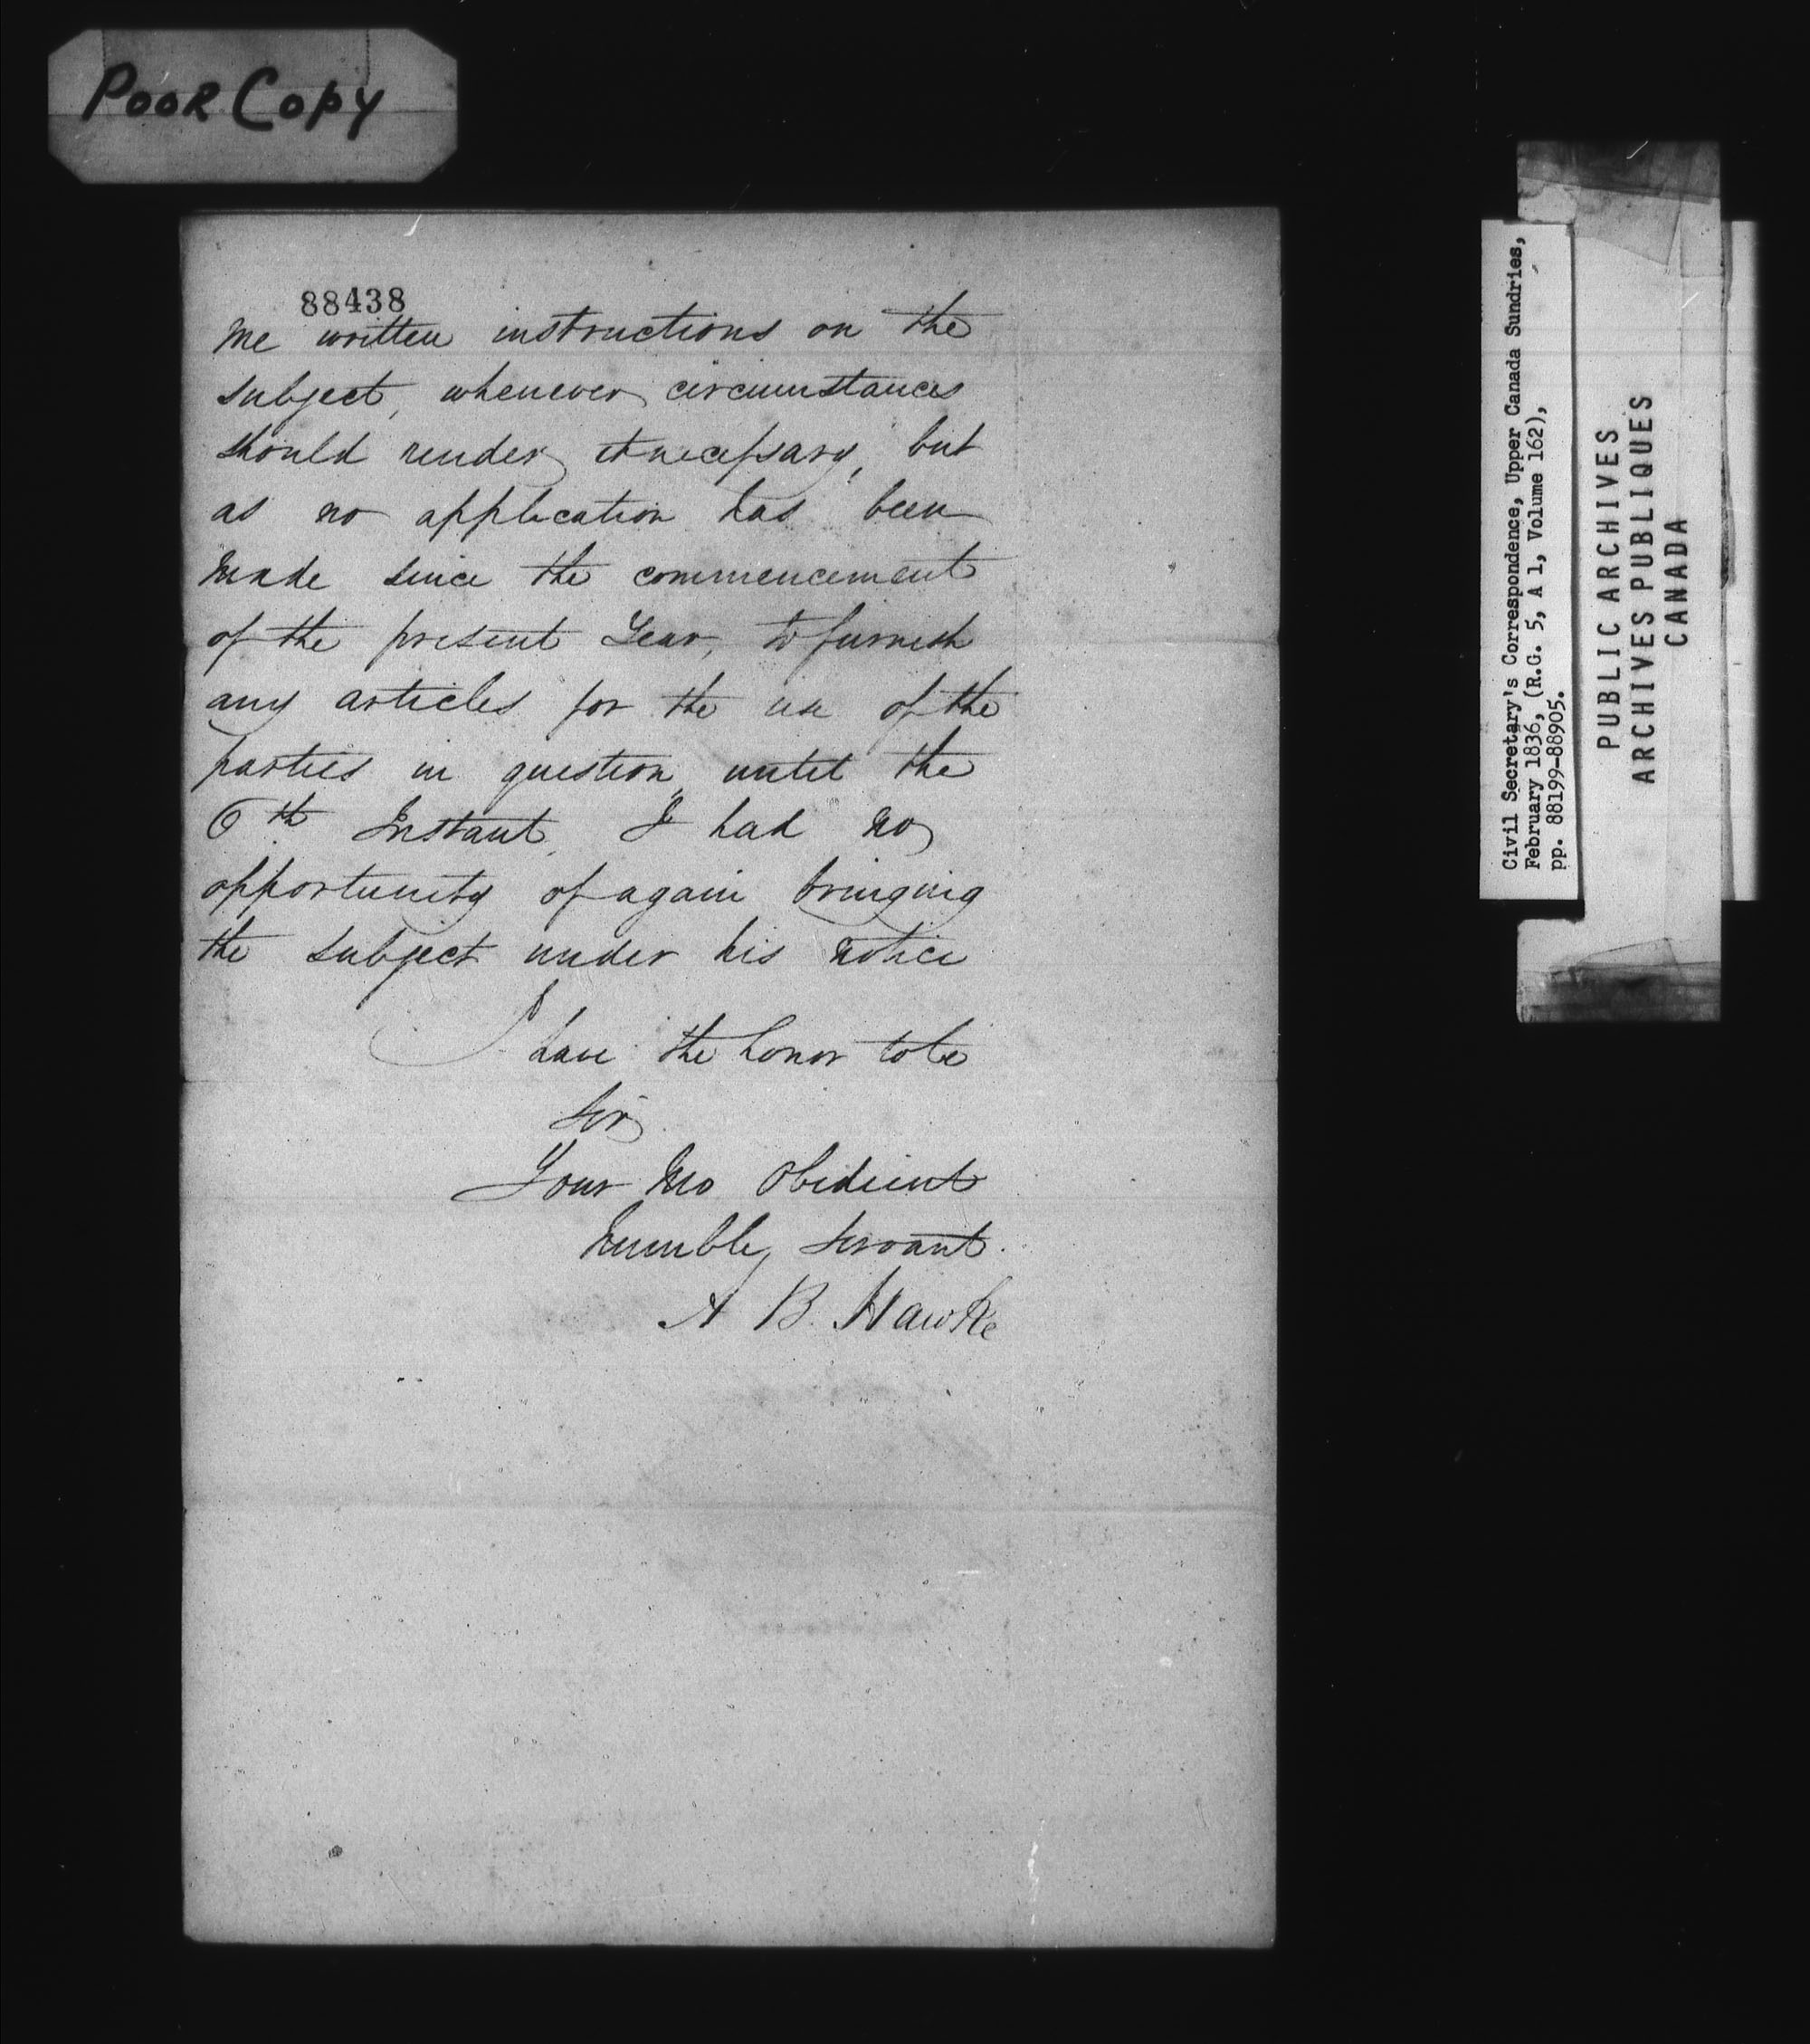 Poor Copy
88438
Me written instructions on the
subject, whenever circumstances
should render it necessary, but
as no application has been
Made since the commencement
of the present Year, to furnish
any articles for the use of the
parties in question, until the
6th Instant, I had no
opportunity of again bringing
the subject under his notice
I have the honor to be
Sir
Your Mo Obedient
Humble Servant.
A B. Hawke
Civil Secretary's Correspondence, Upper Canada Sundries,
February 1836, (R.G. 5, A 1, Volume 162),
pp. 88199-88905.
PUBLIC ARCHIVES
ARCHIVES PUBLIQUES
CANADA